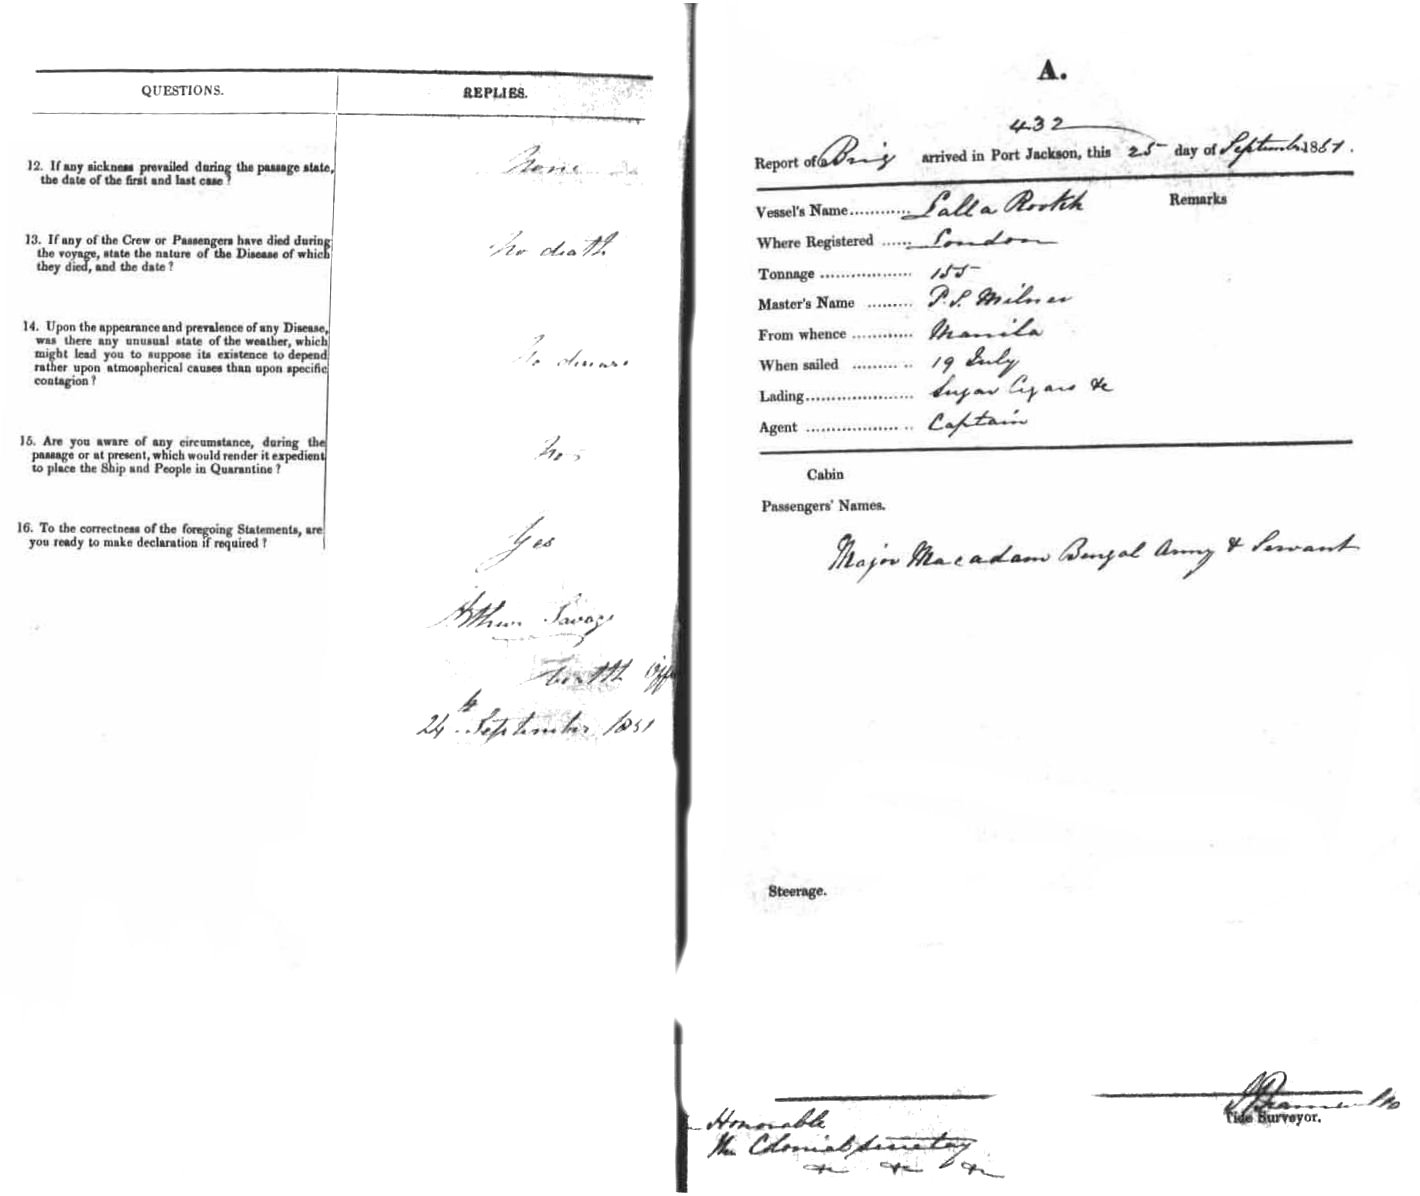 QUESTIONS. REPLIES.
12. If any sickness prevailed during the passage state,
the date of the first and last case?
None
13. If any of the Crew or Passengers have died during
the voyage, state the nature of the Disease of which
they died, and the date?
No death
14. Upon the appearance and prevalence of any Disease,
was there any unusual state of the weather, which
might lead you to suppose its existence to depend
rather upon atmospherical causes than upon specific
contagion?
No disease
15. Are you aware of any circumstance, during the
passage or at present, which would render it expedient
to place the Ship and People in Quarantine?
No
16. To the correctness of the foregoing Statements, are
you ready to make declaration if required?
Yes
Arthur Savage
Health Off
24th September 1851
A.
432
Report of a Brig arrived in Port Jackson, this 25 day of September 1851.
Vessel's Name............ Lalla Rookh Remarks
Where Registered ...... London
Tonnage .................. 155
Master's Name ......... P. S. Milner
From whence ............ Manila
When sailed ......... .. 19 July
Lading..................... Sugar Cigars &c
Agent .................. .. Captain
Cabin
Passengers' Names.
Major Macadam Bengal Army & Servant
Steerage.
Tide Surveyor.
Honorable
The Colonial Secretary
&c &c &c